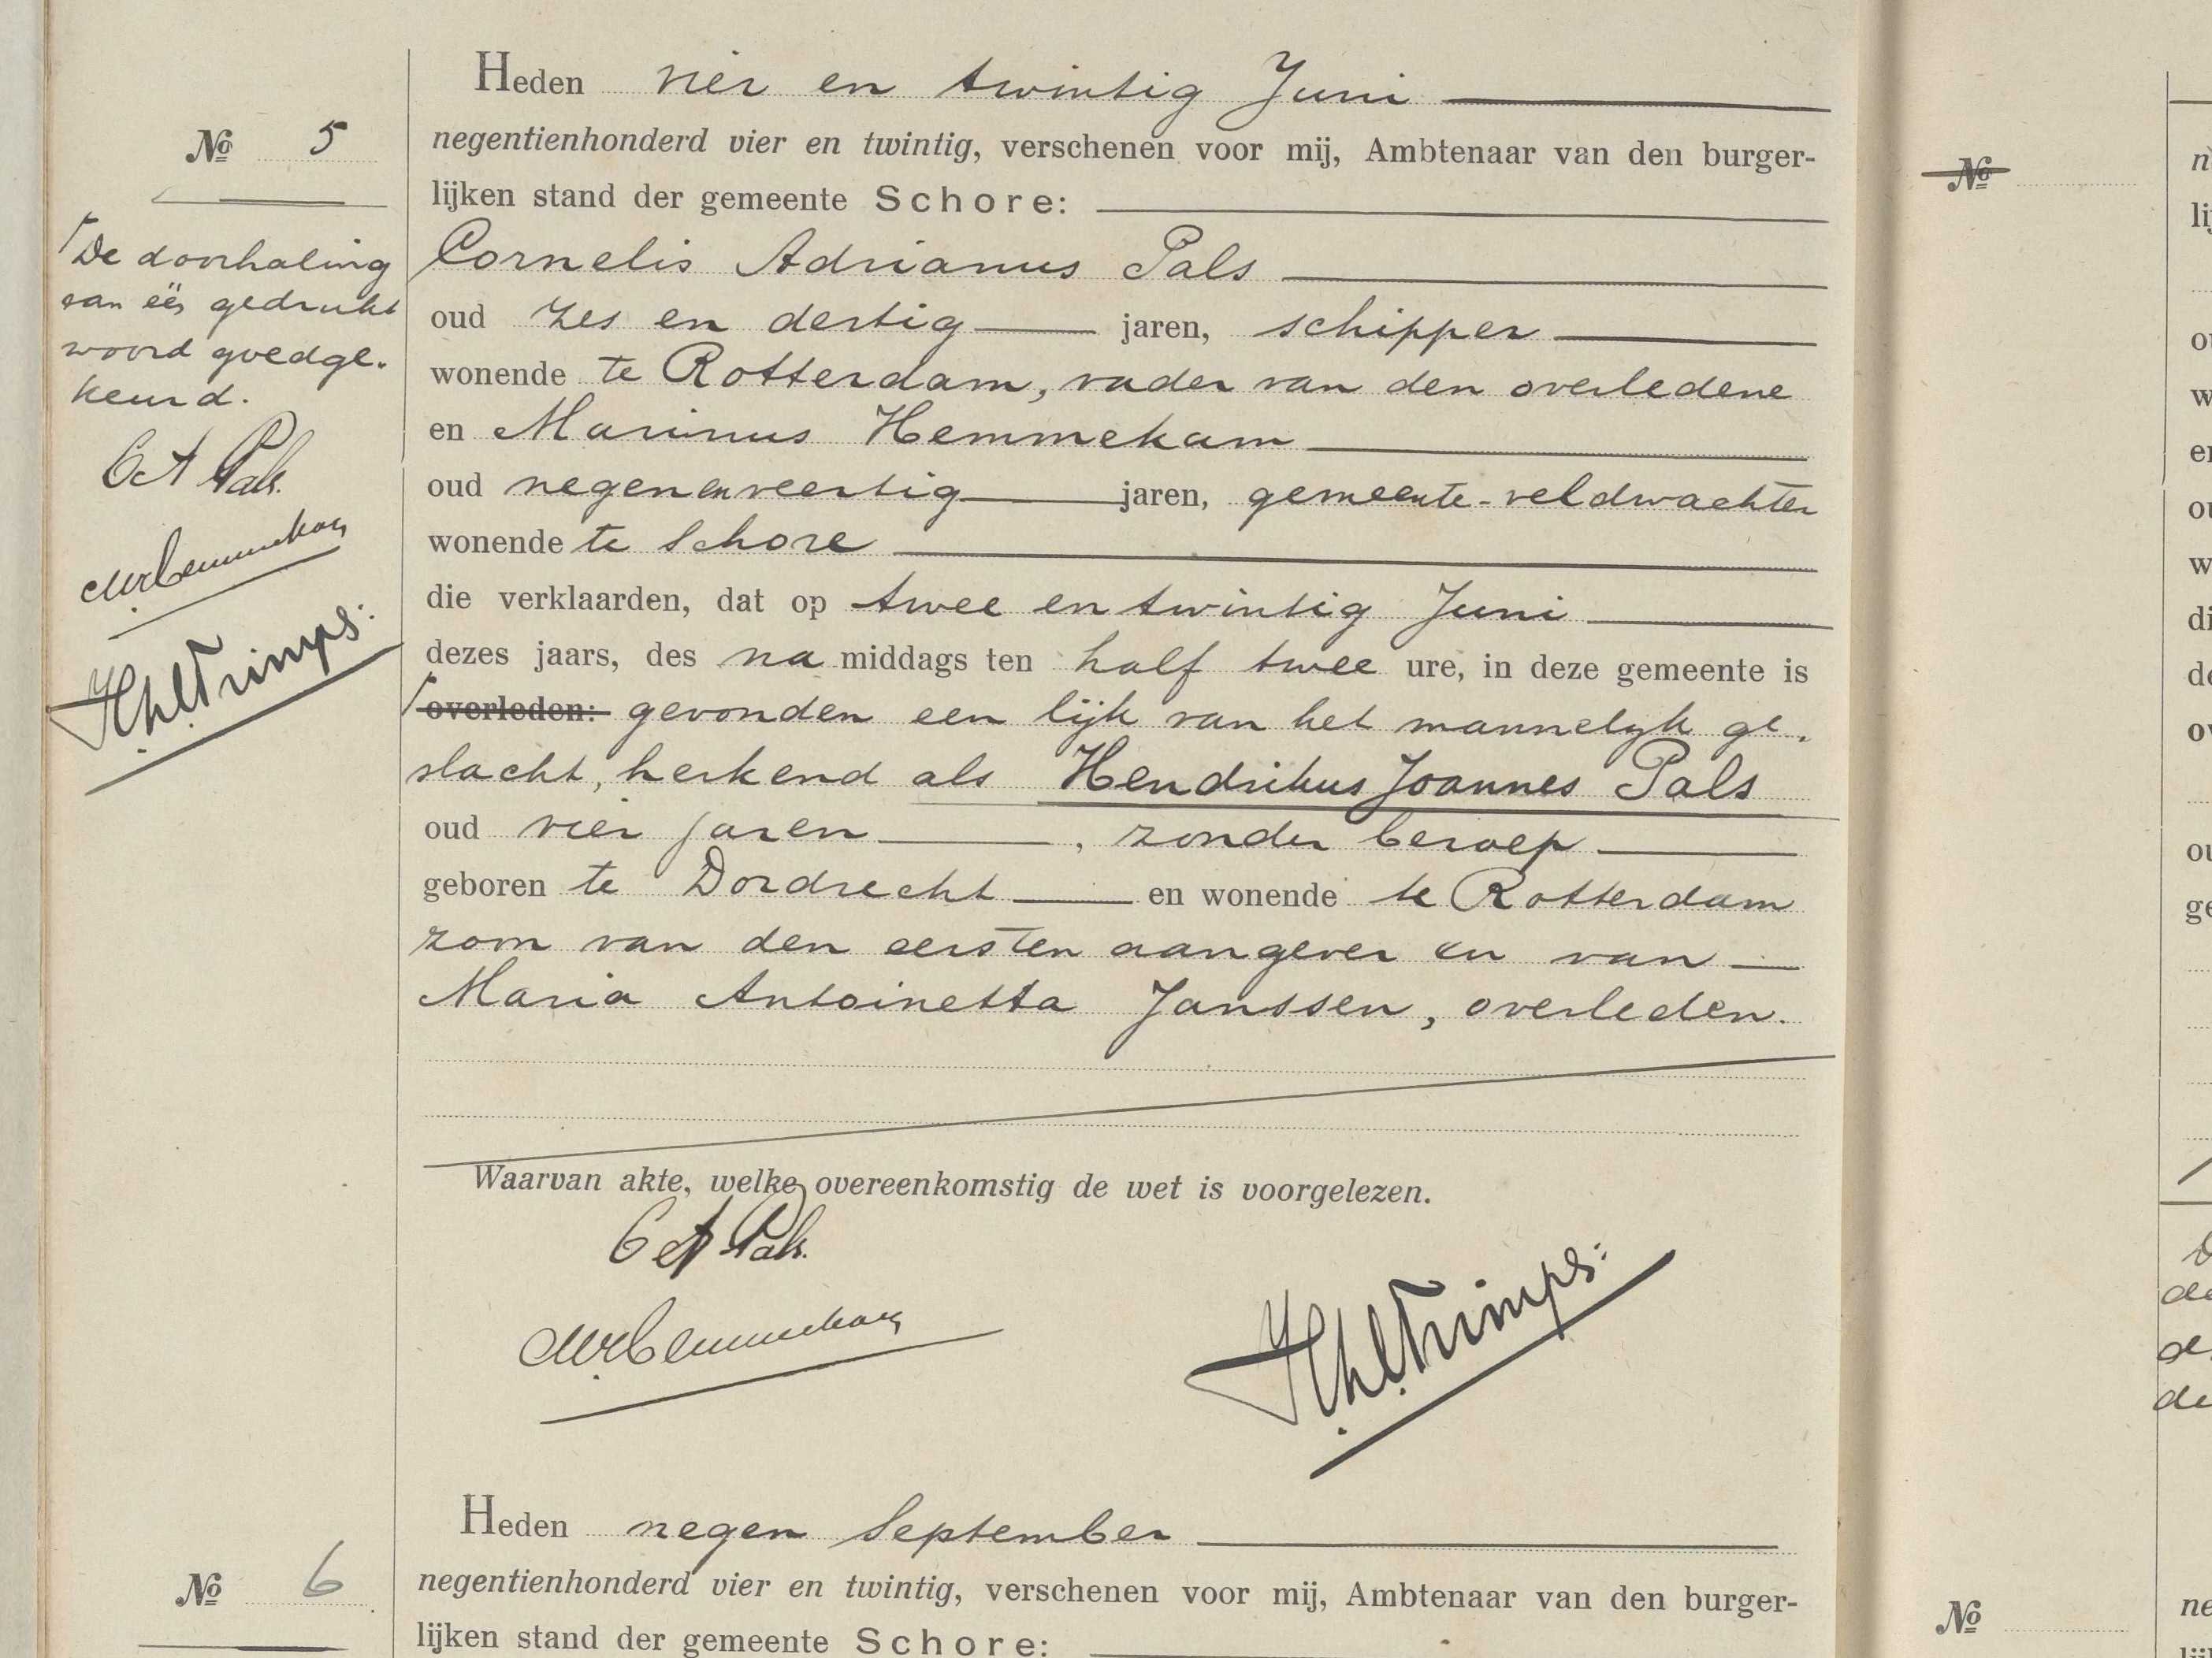 Heden vier en twintig Juni
negentienhonderd vier en twintig, verschenen voor mij, Ambtenaar van den burger-
lijken stand der gemeente Schore:
Cornelis Adrianus Pals
oud zes en dertig jaren, schipper
wonende te Rotterdam, vader van den overledene
en Marinus Hemmekam
oud negen en veertig jaren, gemeente-veldwachter
wonende te Schore
die verklaarden, dat op twee en twintig Juni
dezes jaars, des na middags ten half twee ure, in deze gemeente is
overleden: gevonden een lijk van het mannelijk ge-
slacht, herkend als Hendrikus Joannes Pals
oud vier jaren, zonder beroep
geboren te Dordrecht en wonende te Rotterdam
zoon van den eersten aangever en van
Maria Antoinetta Janssen, overleden.
Waarvan akte, welke overeenkomstig de wet is voorgelezen.
C A Pals.
M Hemmekam
Trimps:
No 5
De doorhaling
van één gedrukt
woord goedge-
keurd.
C A Pals.
M Hemmekam
Trimps:
Heden negen September
negentienhonderd vier en twintig, verschenen voor mij, Ambtenaar van den burger-
lijken stand der gemeente Schore:
No 6
No
No